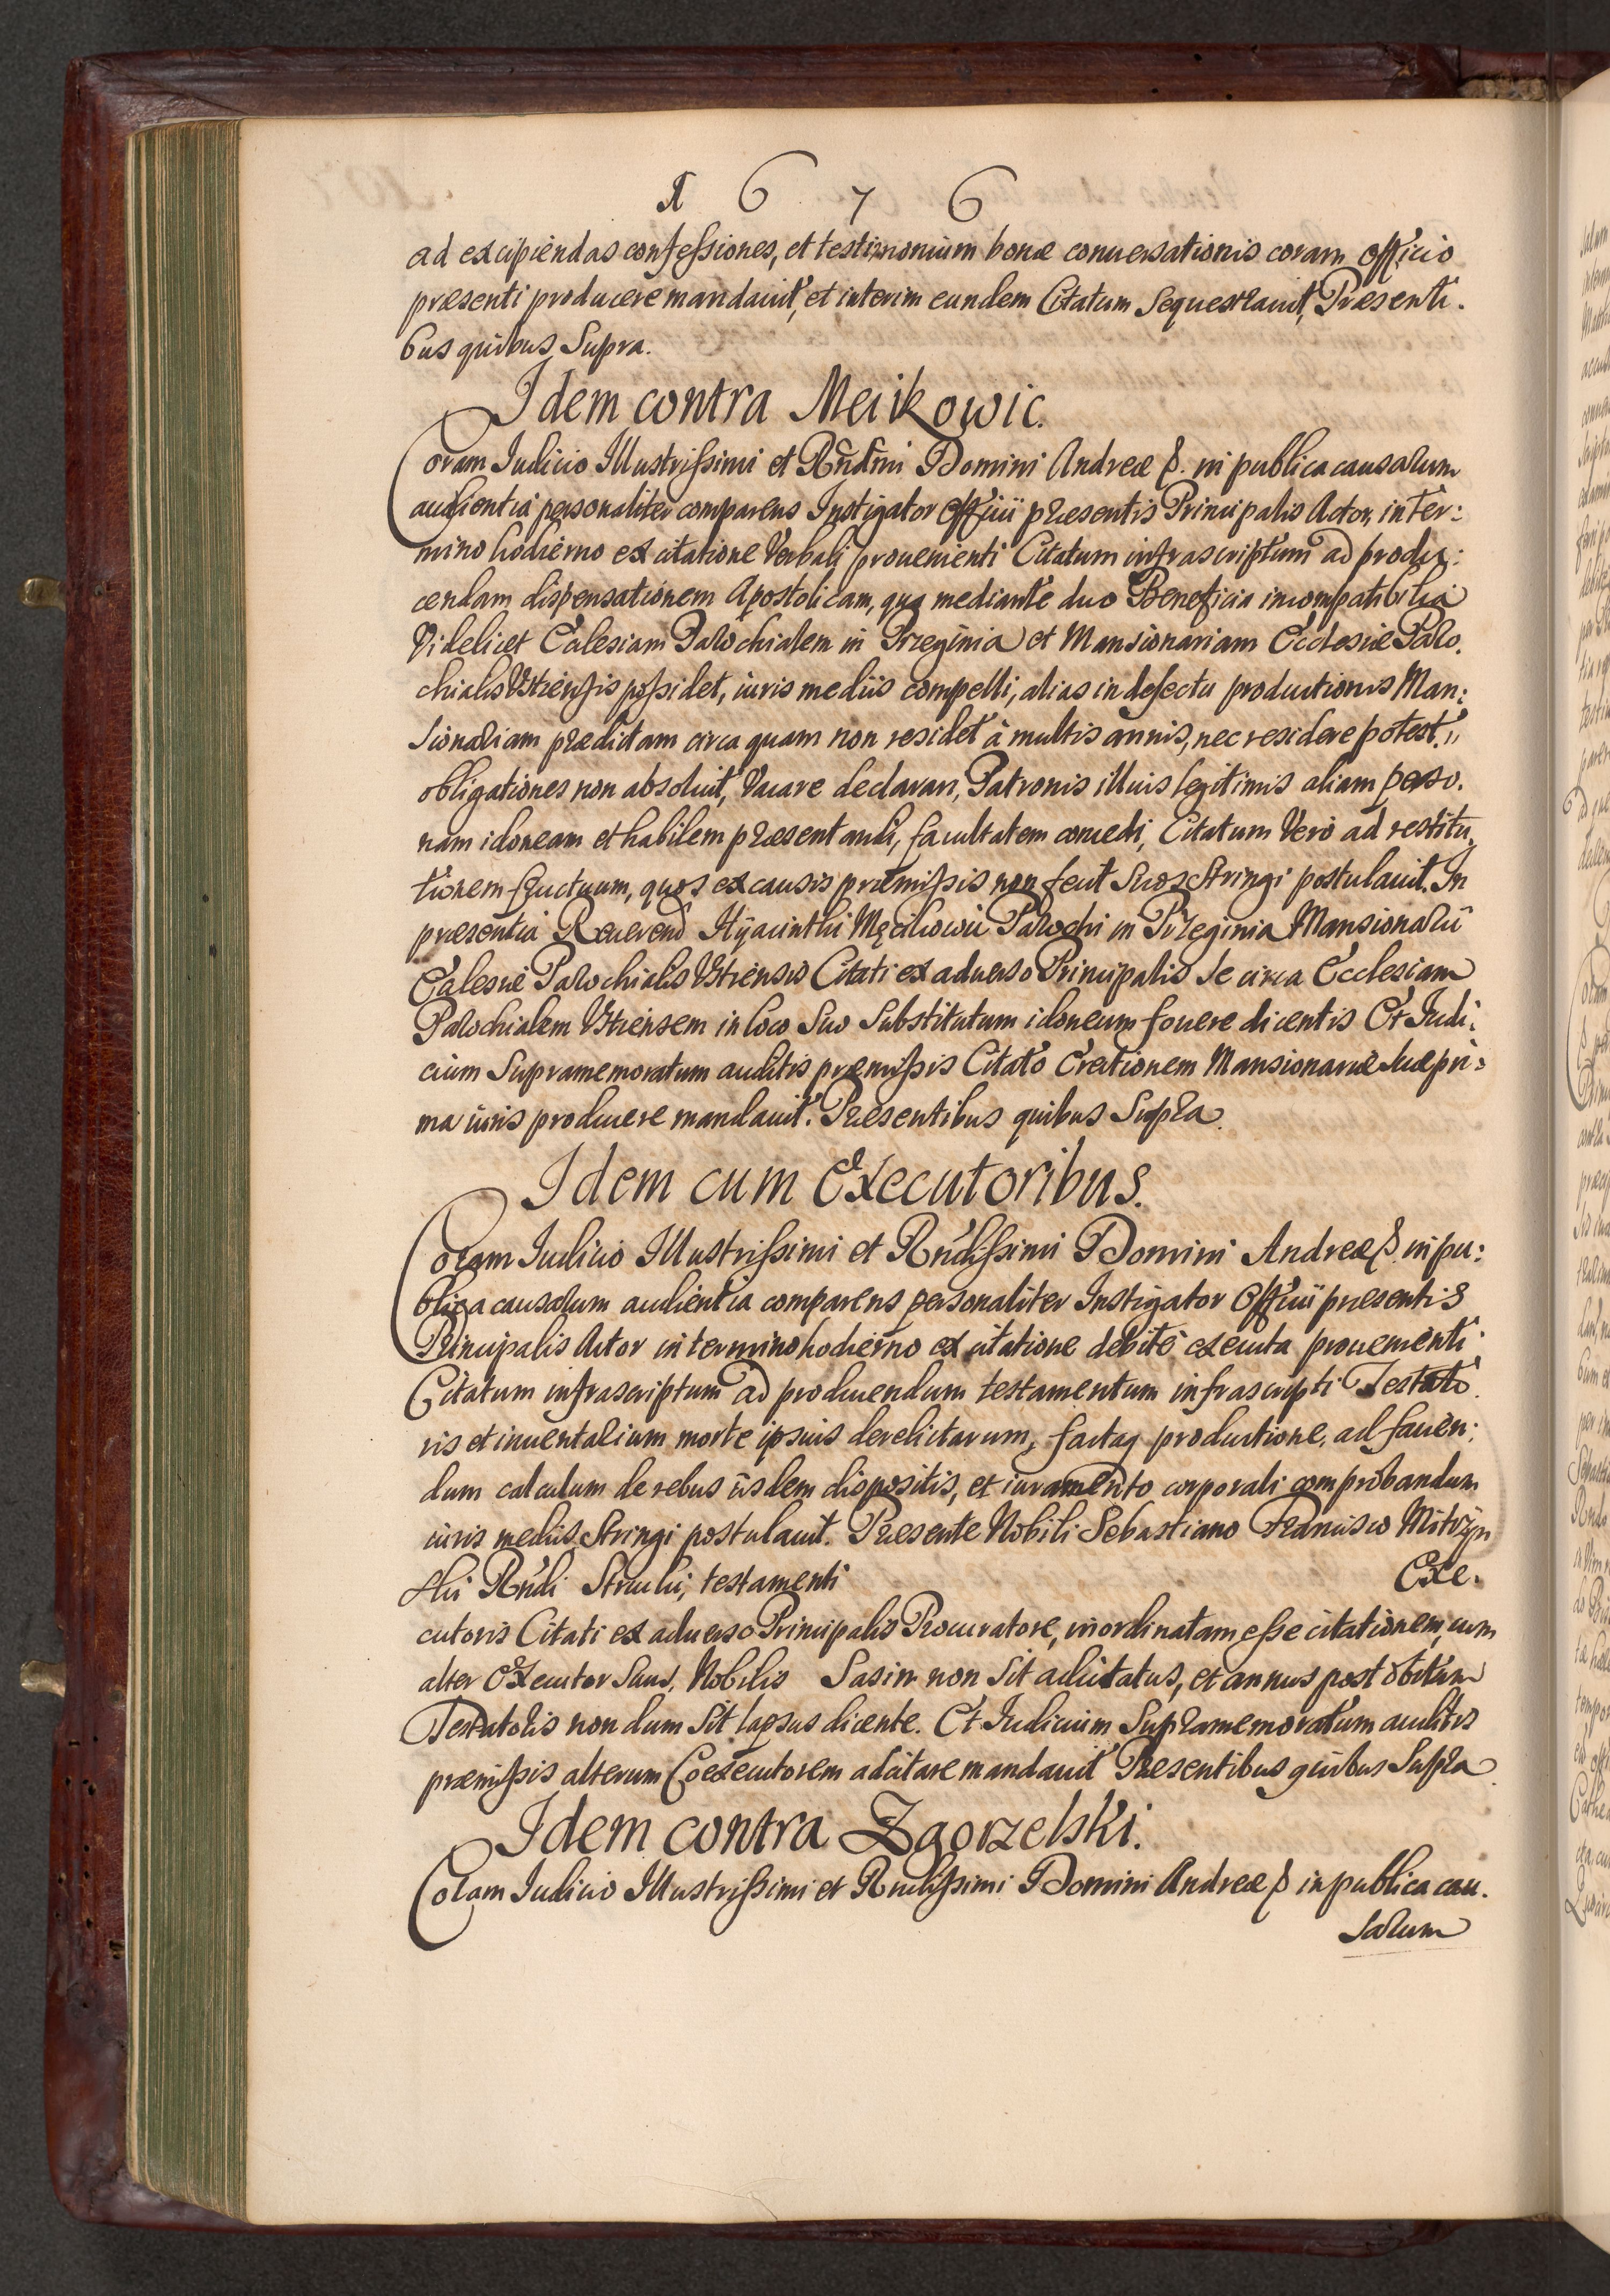 1 6 7 6
ad excipiendas confessiones, et testimonium bonæ conuersationis coram officio
præsenti producere mandauit, et interim eundem Citatum Sequestrauit, Præsenti.
bus quibus Supra.
Idem contra Meikowic.
Coram Iudicio Illustrissimi et Rndmi Domini Andreæ &. in publica causarum
audientia personaliter comparens Instigator Officii præsentis Principalis Actor, in ter:
mino hodierno ex citatione Verbali prouenienti Citatum infrascriptum ad produ:
cendam dispensationem Apostolicam, qua mediante duo Beneficia incompatibilia
Videlicet Ecclesiam Parochialem in Przeginia et Mansionariam Ecclesiæ Paro.
chialis Vstiensis possidet, iuris mediis compelli, alias in defectu productionis Man:
sionariam prædictam circa quam non residet à multis annis, nec residere potest,
obligationes non absoluit, Vacare declarari, Patronis illius legitimis aliam perso.
nam idoneam et habilem præsentandi, facultatem concedi, Citatum Verò ad restitu.
tionem fructuum, quos ex causis præmissis non fecit Suos Stringi postulauit. In
præsentia Reuerend Hyacinthi Męcikowic Parochi in Przeginia Mansionarii
Ecclesiæ Parochialis Vstiensis Citati ex aduerso Principalis Se circa Ecclesiam
Parochialem Vstiensem in loco Suo Substitutum idoneum fouere dicentis Et Iudi.
cium Supramemoratum auditis præmissis Citato Erectionem Mansionariæ Suæ pri:
ma iuris producere mandauit. Præsentibus quibus Supra.
Idem cum Executoribus.
Coram Iudicio Illustrissimi et Rndissimi Domini Andreæ &. in pu:
blica causarum audientia comparens personaliter Instigator Officii præsentis
Principalis Actor in termino hodierno ex citatione debite executa prouenienti
Citatum infrascriptum ad producendum testamentum infrascripti Testato.
ris et inuentarium morte ipsius derelictarum, factaq productione, ad facien:
dum calculum de rebus iisdem dispositis, et iuramento corporali comprobandum
iuris mediis Stringi postulauit. Præsente Nobili Sebastiano Francisco
Rndi testamenti Exe.
cutoris Citati ex aduerso Principalis Procuratore, inordinatam esse citationem, cum
alter Executor Nobilis Sasin non Sit adcitatus, et annus post obitum
Testatoris non dum Sit lapsus dicente. Et Iudicium Supramemoratum auditis
præmissis alterum Coexecutorem adcitare mandauit Præsentibus quibus Supra.
Idem contra Zgorzelski.
Coram Iudicio Illustrissimi et Rndissimi Domini Andreæ & in publica cau.
sarum